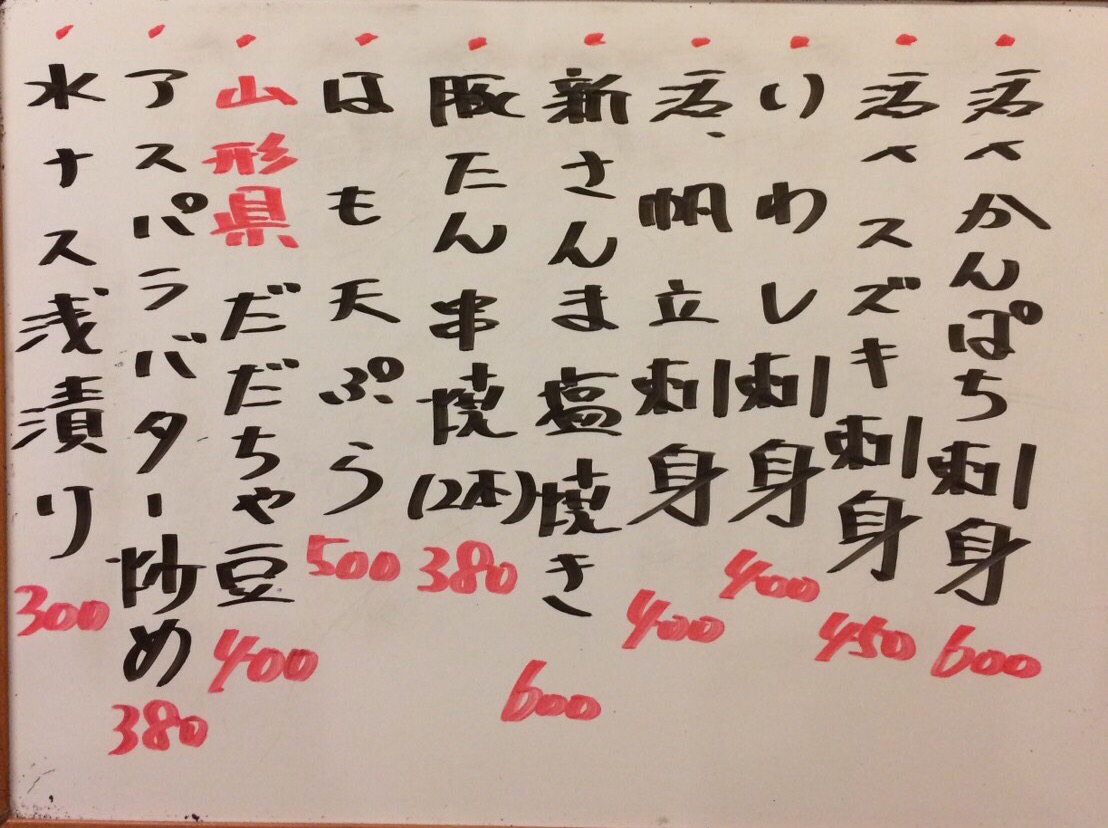 活〆かんぱち刺身 600
活〆スズキ刺身 450
いわし刺身 400
活、帆立刺身 400
新さんま塩焼き 600
豚たん串焼(2本) 380
はも天ぷら 500
山形県だだちゃ豆 400
アスパラバター炒め 380
水ナス浅漬り 300